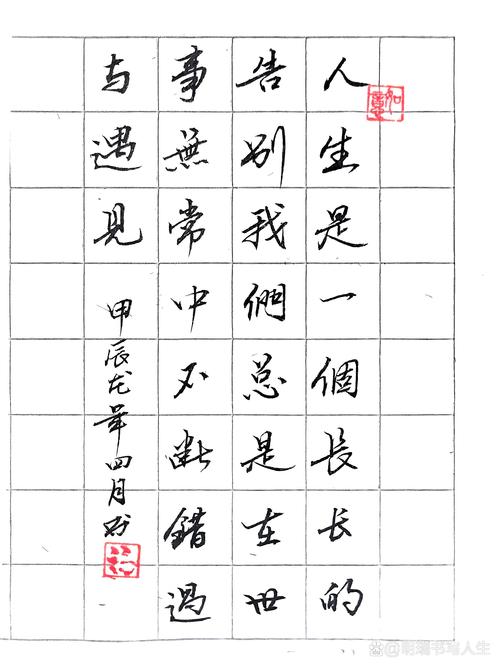 人生是一個長长的
告别我們总是在世
事無常中不断錯過
与遇見
甲辰龙年四月
如意